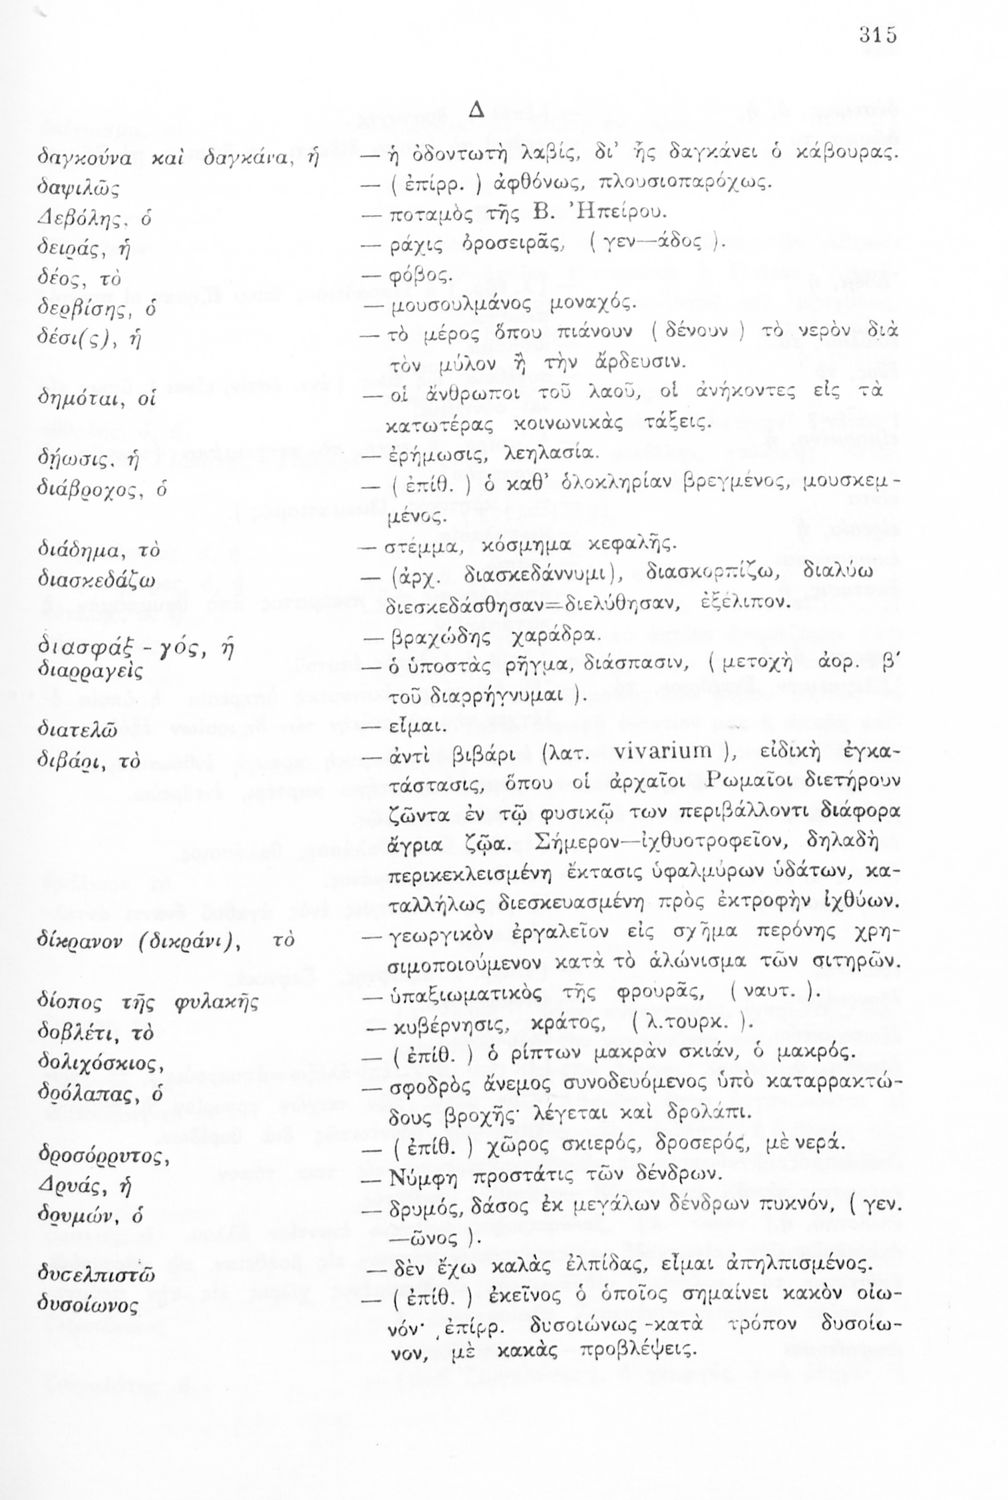 315
Δ
δαγκούνα καὶ δαγκάνα, ἡ — ἡ ὀδοντωτὴ λαβίς, δι' ἧς δαγκάνει ὁ κάβουρας.
δαψιλῶς — ( ἐπίρρ. ) ἀφθόνως, πλουσιοπαρόχως.
Δεβόλης, ὁ — ποταμὸς τῆς Β. Ἠπείρου.
δειράς, ἡ — ράχις ὀροσειρᾶς, ( γεν—άδος ).
δέος, τὸ — φόβος.
δερβίσης, ὁ — μουσουλμάνος μοναχός.
δέσι(ς), ἡ — τὸ μέρος ὅπου πιάνουν ( δένουν ) τὸ νερὸν διὰ
τὸν μύλον ἢ τὴν ἄρδευσιν.
δημόται, οἱ — οἱ ἄνθρωποι τοῦ λαοῦ, οἱ ἀνήκοντες εἰς τὰ
κατωτέρας κοινωνικὰς τάξεις.
δήωσις, ἡ — ἐρήμωσις, λεηλασία.
διάβροχος, ὁ — ( ἐπίθ. ) ὁ καθ' ὁλοκληρίαν βρεγμένος, μουσκεμ-
μένος.
διάδημα, τὸ — στέμμα, κόσμημα κεφαλῆς.
διασκεδάζω — (ἀρχ. διασκεδάννυμι), διασκορπίζω, διαλύω
διεσκεδάσθησαν=διελύθησαν, ἐξέλιπον.
διασφάξ - γός, ἡ — βραχώδης χαράδρα.
διαρραγεὶς — ὁ ὑποστὰς ρῆγμα, διάσπασιν, ( μετοχὴ ἀορ. β'
τοῦ διαρρήγνυμαι ).
διατελῶ — εἶμαι.
διβάρι, τὸ — ἀντὶ βιβάρι (λατ. vivarium ), εἰδικὴ ἐγκα-
τάστασις, ὅπου οἱ ἀρχαῖοι Ρωμαῖοι διετήρουν
ζῶντα ἐν τῷ φυσικῷ των περιβάλλοντι διάφορα
ἄγρια ζῷα. Σήμερον—ἰχθυοτροφεῖον, δηλαδὴ
περικεκλεισμένη ἔκτασις ὑφαλμύρων ὑδάτων, κα-
ταλλήλως διεσκευασμένη πρὸς ἐκτροφὴν ἰχθύων.
δίκρανον (δικράνι), τὸ — γεωργικὸν ἐργαλεῖον εἰς σχῆμα περόνης χρη-
σιμοποιούμενον κατὰ τὸ ἁλώνισμα τῶν σιτηρῶν.
δίοπος τῆς φυλακῆς — ὑπαξιωματικὸς τῆς φρουρᾶς, ( ναυτ. ).
δοβλέτι, τὸ — κυβέρνησις, κράτος, ( λ.τουρκ. ).
δολιχόσκιος, — ( ἐπίθ. ) ὁ ρίπτων μακρὰν σκιάν, ὁ μακρός.
δρόλαπας, ὁ σφοδρὸς ἄνεμος συνοδευόμενος ὑπὸ καταρρακτώ-
δους βροχῆς· λέγεται καὶ δρολάπι.
δροσόρρυτος, — ( ἐπίθ. ) χῶρος σκιερός, δροσερός, μὲ νερά.
Δρυάς, ἡ — Νύμφη προστάτις τῶν δένδρων.
δρυμών, ὁ — δρυμός, δάσος ἐκ μεγάλων δένδρων πυκνόν, ( γεν.
—ῶνος ).
δυσελπιστῶ — δὲν ἔχω καλὰς ἐλπίδας, εἶμαι ἀπηλπισμένος.
δυσοίωνος — ( ἐπίθ. ) ἐκεῖνος ὁ ὁποῖος σημαίνει κακὸν οἰω-
νόν· ἐπίρρ. δυσοιώνως -κατὰ τρόπον δυσοίω-
νον, μὲ κακὰς προβλέψεις.